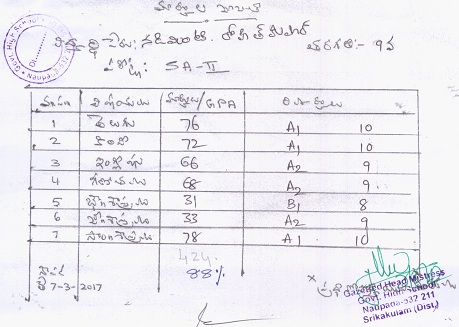 మార్కుల జాబితా
విద్యార్థి పేరు: నడిమింటి. రోహిత్ కుమార్
తరగతి:- 9వ
పరీక్ష: SA-II
విషయములు మార్కులు/GPA
1 తెలుగు 76 A1 10
2 హిందీ 72 A1 10
3 ఇంగ్లీషు 66 A2 9
4 గణితము 68 A2 9
5 భౌతికశాస్త్రము 31 B1 8
6 జీవశాస్త్రము 33 A2 9
7 సాంఘికశాస్త్రము 78 A1 10
424
88%
7-3-2017
Gazetted Head Mistress
Govt. High School
Naupada-532 211
Srikakulam (Dist)